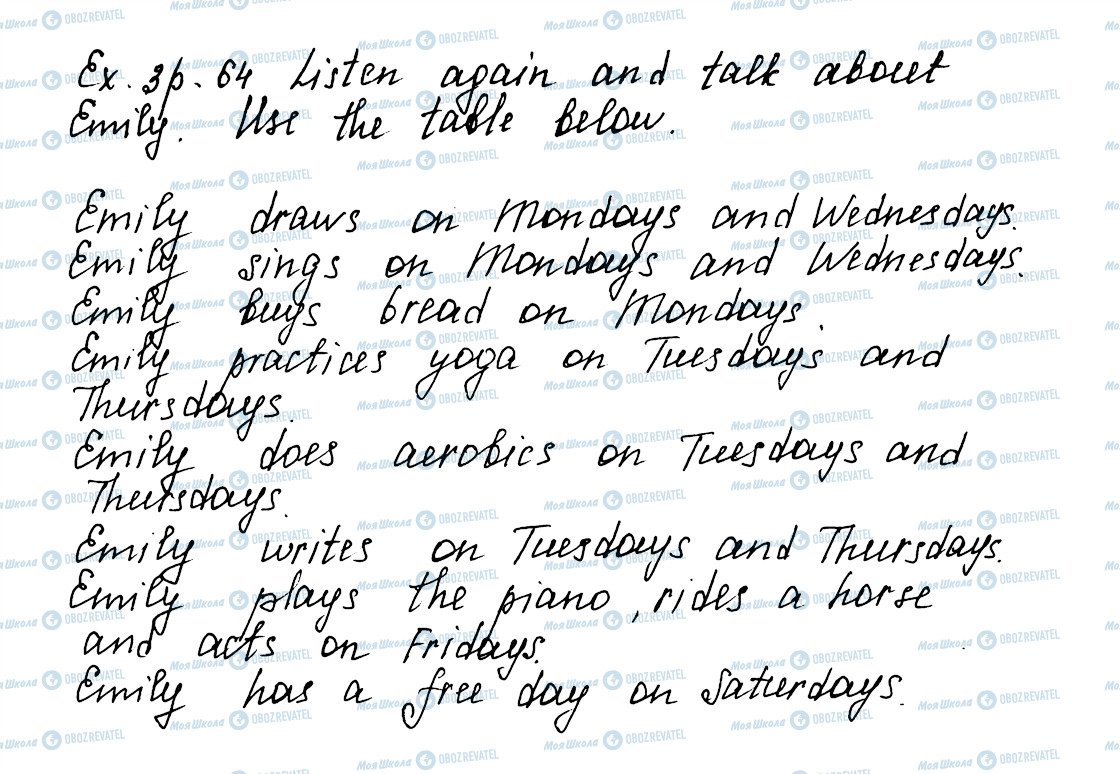 Ex. 3 p. 64 Listen again and talk about
Emily. Use the table below.
Emily draws on Mondays and Wednesdays.
Emily sings on Mondays and Wednesdays.
Emily buys bread on Mondays.
Emily practices yoga on Tuesdays and
Thursdays.
Emily does aerobics on Tuesdays and
Thursdays.
Emily writes on Tuesdays and Thursdays.
Emily plays the piano, rides a horse
and acts on Fridays.
Emily has a free day on Saturdays.